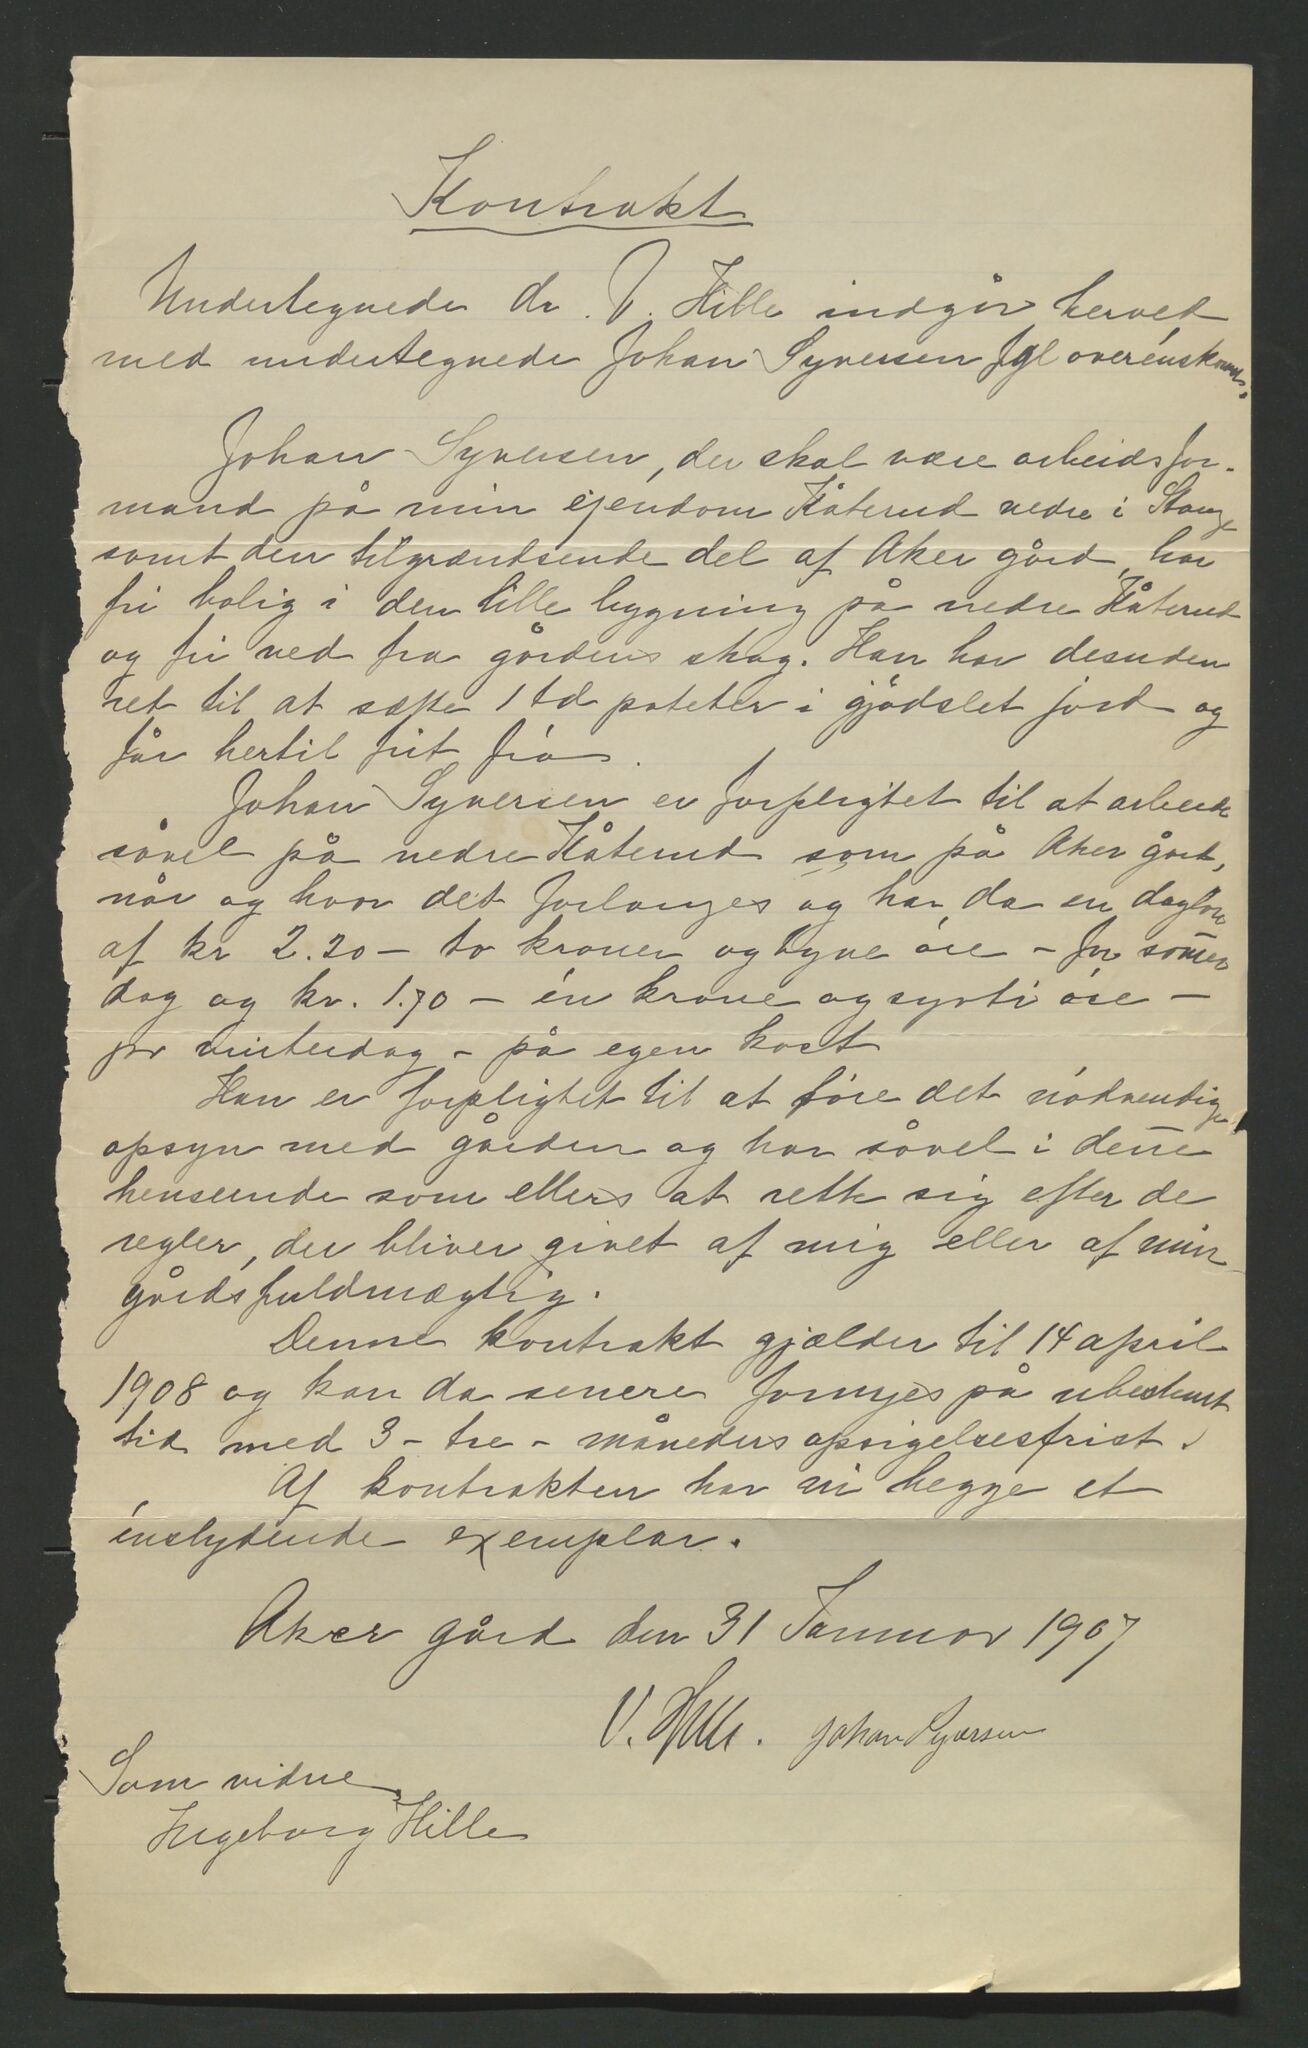 Kontrakt
Undertegnede dr. V. Hille indgår herved
med undertegnede Johan Syversen fgl overénskomst.
Johan Syversen, der skal være arbeidsfor-
mand på min ejendom Kåterud nedre i Stange
samt den tilgrændsende del af Aker gård, har
fri bolig i den lille bygning på nedre Kåterud
og fri ved fra gårdens skog. Han har desuden
ret til at sætte 1 td poteter i gjødslet jord og
får hertil frit frø.
Johan Syversen er forpligtet til at arbeide
såvel på nedre Kåterud som på Aker gård,
når og hvor det forlanges og har da en dagløn
af kr 2.20 - to kroner og tyve øre - for som̄er
dag og kr. 1.70 - én krone og sytti øre -
pr vinterdag - på egen kost
Han er forpligtet til at føre det nødvendige
opsyn med gården og har såvel i den̄e
henseende som ellers at rette sig efter de
regler, der bliver givet af mig eller af min
gårdsfuldmægtig.
Denne kontrakt gjælder til 14 april
1908 og kan da senere fornyes på ubestemt
tid med 3 - tre - måneders opsigelsesfrist.
Af kontrakten har vi begge et
énslydende exemplar.
Aker gård den 31 Januar 1907
V. Hille. Johan Syversen
Som vidne
Ingeborg Hille